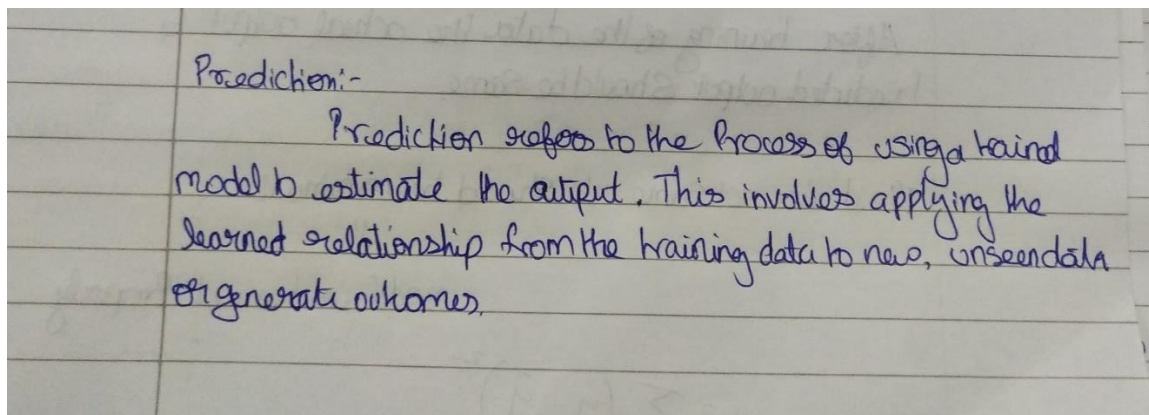 Prediction:-
Prediction refers to the Process of using a traind
model to estimate the output. This involves applying the
learned relationship from the training data to new, unseen data
or generate outcomes.